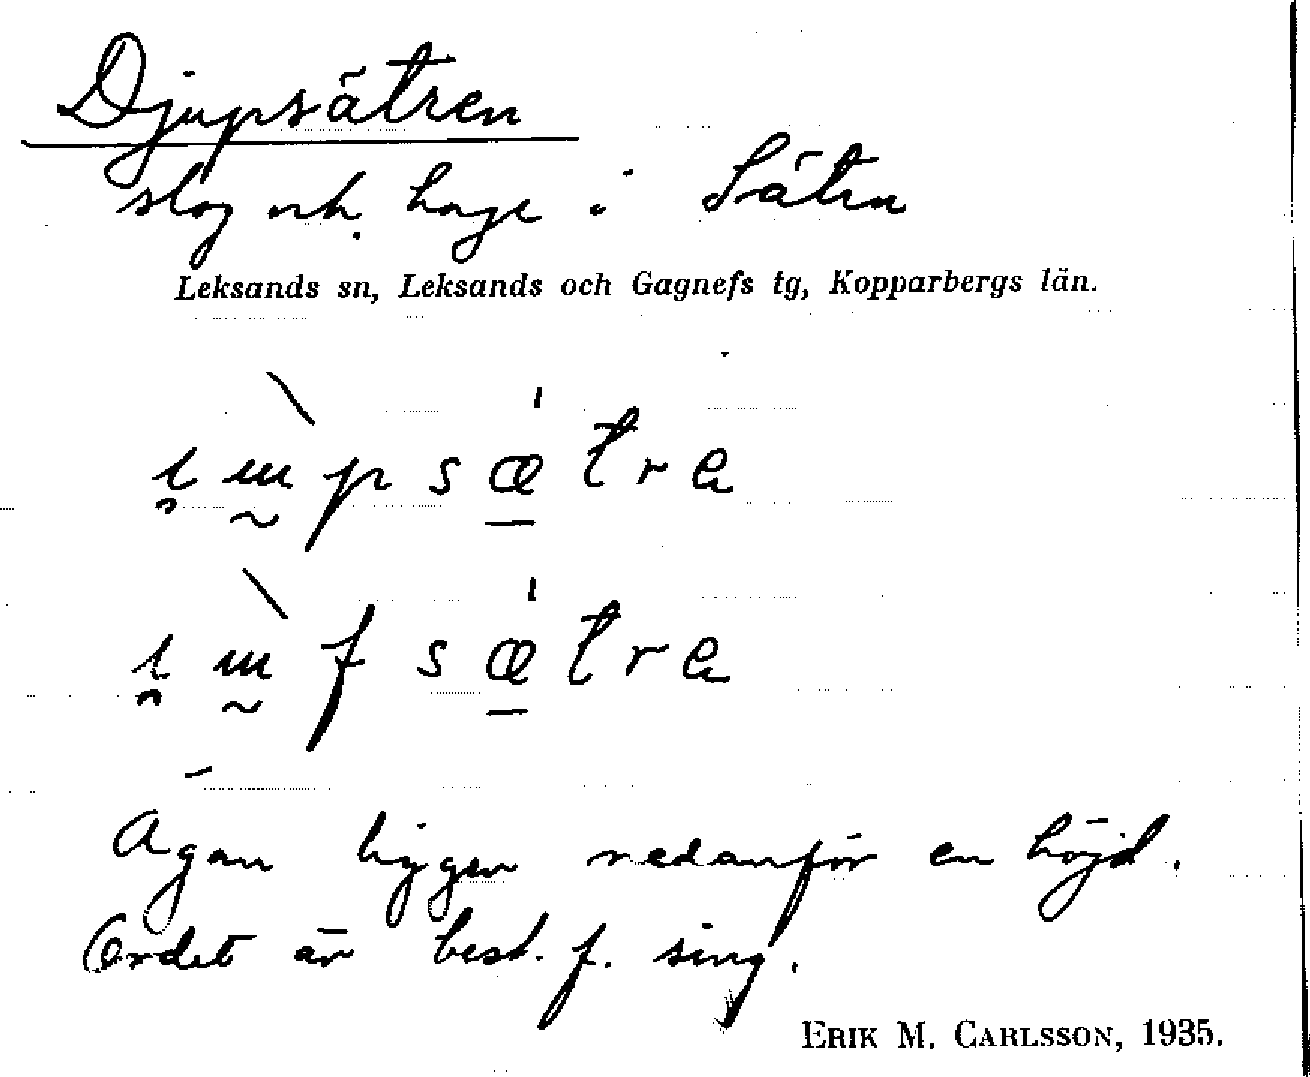 Djupsätren
slog och hage i Sätra
Leksands sn, Leksands och Gagnefs tg, Kopparbergs län.
Ägan ligger nedanför en höjd.
Ordet är best. f. sing.
ERIK M. CARLSSON, 1935.